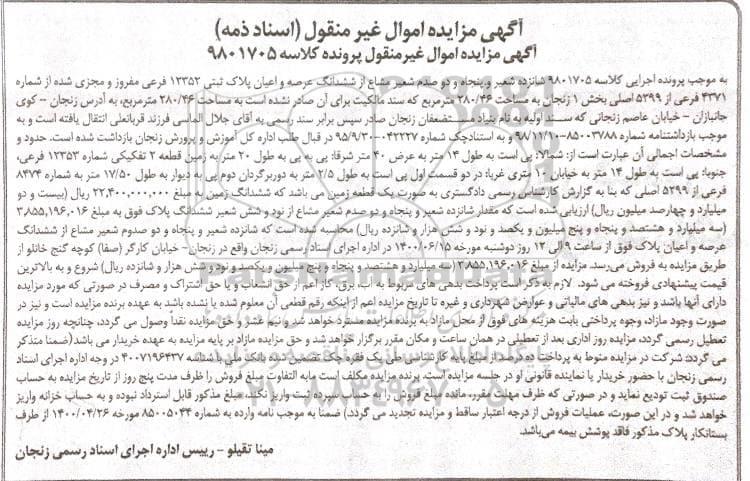 آگهی مزایده اموال غیر منقول (اسناد ذمه)
آگهی مزایده اموال غیرمنقول پرونده کلاسه ۹۸۰۱۷۰۵
به موجب پرونده اجرایی کلاسه ۹۸۰۱۷۰۵ شانزده شعیر و پنجاه و دو صدم شعیر مشاع از ششدانگ عرصه و اعیان پلاک ثبتی ۱۲۳۵۲ فرعی مفروز و مجزی شده از شماره
۴۳۷۱ فرعی از ۵۲۹۹ اصلی بخش ۱ زنجان به مساحت ۲۸۰/۴۶ مترمربع که سند مالکیت برای آن صادر نشده است به مساحت ۲۸۰/۴۶ مترمربع، به آدرس زنجان - کوی
جانبازان - خیابان عاصم زنجانی که سند اولیه به نام بنیاد مستضعفان زنجان صادر سپس برابر سند رسمی به آقای جلال الماسی فرزند قربانعلی انتقال یافته است و به
موجب بازداشتنامه شماره ۸۵۰۰۳۷۸۸-۹۸/۱۱/۱۰ و به استنادچک شماره ۰۴۲۲۲۷-۹۵/۹/۳۰ در قبال طلب اداره کل آموزش و پرورش زنجان بازداشت شده است. حدود و
مشخصات اجمالی آن عبارت است از: شمالا: پی است به طول ۱۴ متر به عرض ۴۰ متر شرقا: پی به پی به طول ۲۰ متر به زمین قطعه ۲ تفکیکی شماره ۱۲۳۵۳ فرعی،
جنوبا: پی است به طول ۱۴ متر به خیابان ۱۰ متری غربا: در دو قسمت اول پی است به طول ۲/۵ متر به دوربرگردان دوم پی به دیوار به طول ۱۷/۵۰ متر به شماره ۸۴۷۴
فرعی از ۵۲۹۹ اصلی که بنا به گزارش کارشناس رسمی دادگستری به صورت یک قطعه زمین می باشد که ششدانگ زمین به مبلغ ۲۲,۴۰۰,۰۰۰,۰۰۰ ریال (بیست و دو
میلیارد و چهارصد میلیون ریال) ارزیابی شده است که مقدار شانزده شعیر و پنجاه و دو صدم شعیر مشاع از نود و شش شعیر ششدانگ پلاک فوق به مبلغ ۳,۸۵۵,۱۹۶,۰۱۶
(سه میلیارد و هشتصد و پنجاه و پنج میلیون و یکصد و نود و شش هزار و شانزده ریال) محاسبه شده است که شانزده شعیر و پنجاه و دو صدوم شعیر مشاع از ششدانگ
عرصه و اعیان پلاک فوق از ساعت ۹ الی ۱۲ روز دوشنبه مورخه ۱۴۰۰/۰۶/۱۵ در اداره اجرای اسناد رسمی زنجان واقع در زنجان - خیابان کارگر (صفا) کوچه گنج خانلو از
طریق مزایده به فروش می‌رسد. مزایده از مبلغ ۳,۸۵۵,۱۹۶,۰۱۶ (سه میلیارد و هشتصد و پنجاه و پنج میلیون و یکصد و نود و شش هزار و شانزده ریال) شروع و به بالاترین
قیمت پیشنهادی فروخته می شود. لازم به ذکر است پرداخت بدهی های مربوط به آب، برق، گاز اعم از حق انشعاب و یا حق اشتراک و مصرف در صورتی که مورد مزایده
دارای آنها باشد و نیز بدهی های مالیاتی و عوارض شهرداری و غیره تا تاریخ مزایده اعم از اینکه رقم قطعی آن معلوم شده یا نشده باشد به عهده برنده مزایده است و نیز در
صورت وجود مازاد، وجوه پرداختی بابت هزینه های فوق از محل مازاد به برنده مزایده مسترد خواهد شد و نیم عشر و حق مزایده نقداً وصول می گردد، چنانچه روز مزایده
تعطیل رسمی گردد، مزایده روز اداری بعد از تعطیلی در همان ساعت و مکان مقرر برگزار خواهد شد و حق مزایده مازاد بر پایه مزایده به عهده خریدار می باشد (ضمنا متذکر
می گردد: شرکت در مزایده منوط به پرداخت ده درصد از مبلغ پایه کارشناسی طی یک فقره چک تضمین شده بانک ملی با شناسه ۴۰۰۷۱۹۶۴۳۷ در وجه اداره اجرای اسناد
رسمی زنجان با حضور خریدار یا نماینده قانونی او در جلسه مزایده است. برنده مزایده مکلف است مابه التفاوت مبلغ فروش را ظرف مدت پنج روز از تاریخ مزایده به حساب
صندوق ثبت تودیع نماید و در صورتی که ظرف مهلت مقرر، مانده مبلغ فروش را به حساب سپرده ثبت واریز نکند، مبلغ مذکور قابل استرداد نبوده و به حساب خزانه واریز
خواهد شد و در این صورت، عملیات فروش از درجه اعتبار ساقط و مزایده تجدید می گردد) ضمنا به موجب نامه وارده به شماره ۸۵۰۰۵۰۴۴ مورخه ۱۴۰۰/۰۴/۲۶ از طرف
بستانکار پلاک مذکور فاقد پوشش بیمه می‌باشد.
مینا تقیلو - رییس اداره اجرای اسناد رسمی زنجان